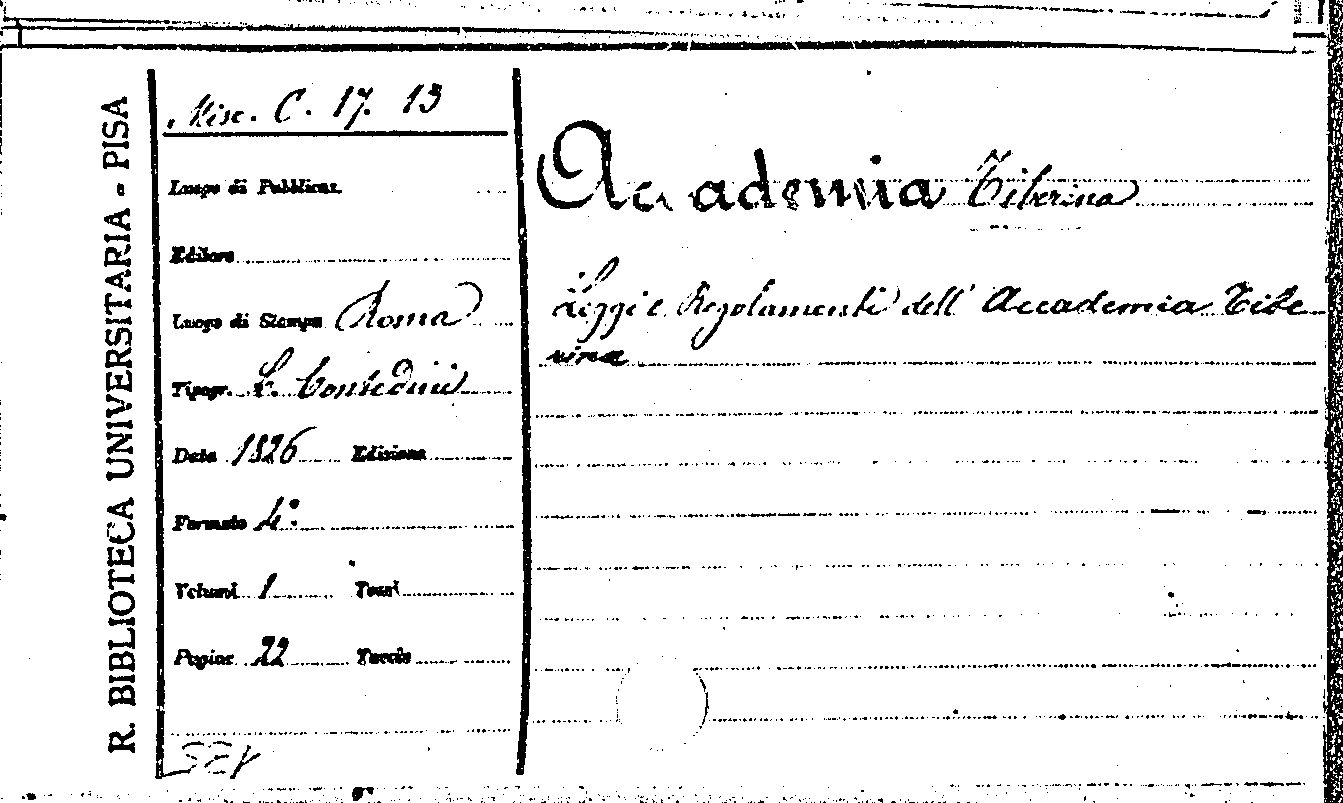 R. BIBLIOTECA UNIVERSITARIA - PISA
Misc. C. 17. 13
Luogo di Pubblicaz.
Editore
Luogo di Stampa Roma
Tipogr. Contedini
Data 1826 Edizione
Formato 4°.
Volumi 1 Tomi
Pagine 22 Tavole
Accademia Tiberina
Leggi e Regolamenti dell' Accademia Tibe
rina